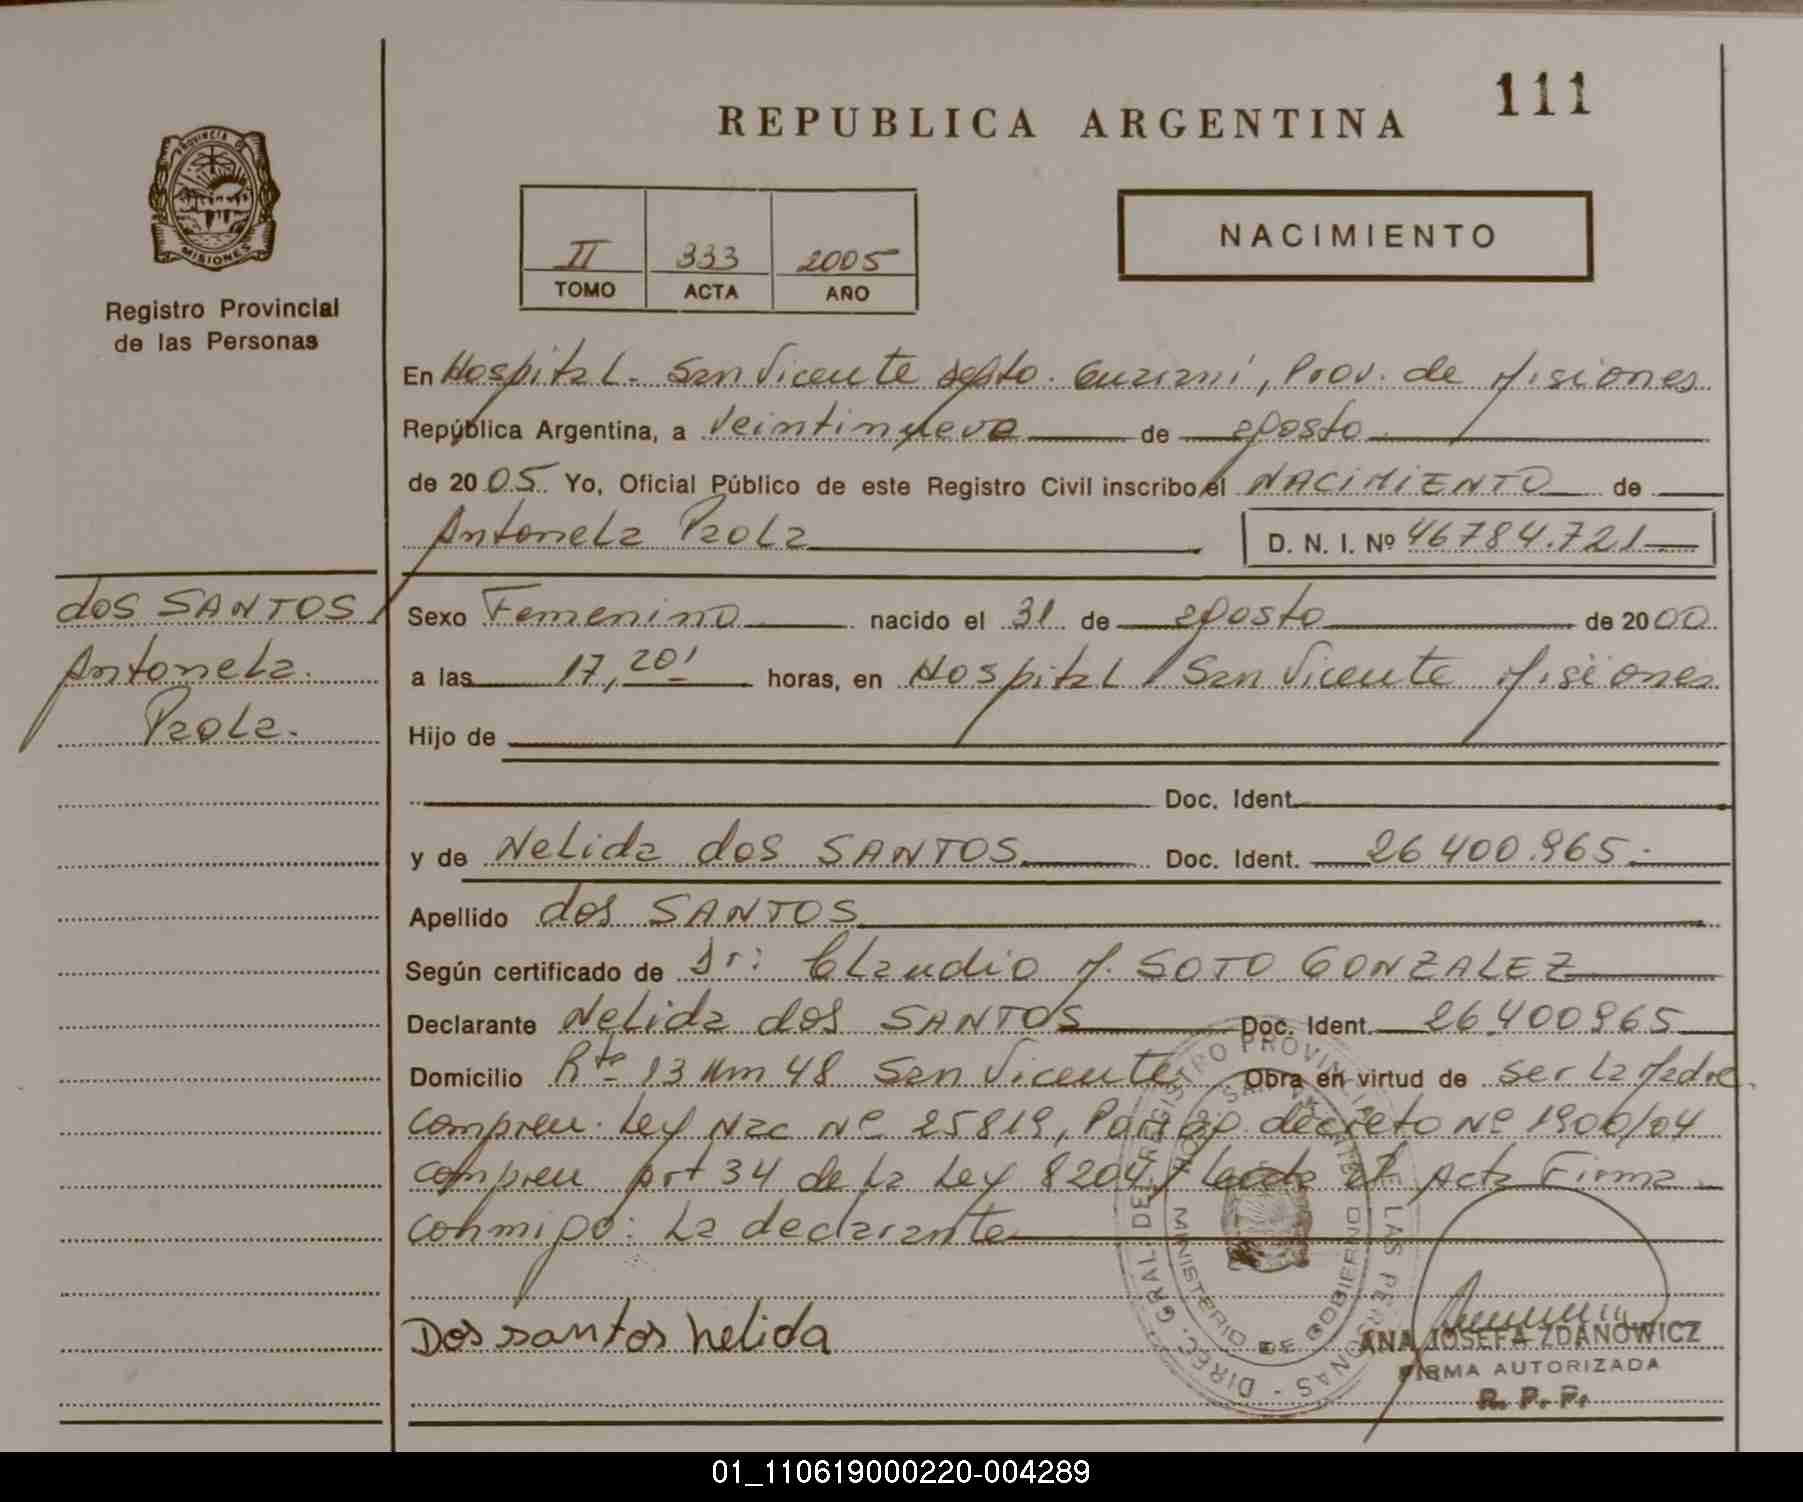 111
REPUBLICA ARGENTINA
PROVINCIA DE
MISIONES
NACIMIENTO
II 333 2005
TOMO ACTA AÑO
Registro Provincial
de las Personas
En Hospital San Vicente depto. Guaraní, Prov. de Misiones
República Argentina, a Veintinueve de agosto
de 2005 Yo, Oficial Público de este Registro Civil inscribo el NACIMIENTO de
Antonela Paola D. N. I. Nº 46784.721
dos SANTOS
Antonela
Paola.
Sexo Femenino nacido el 31 de agosto de 2000
a las 17,20' horas, en Hospital San Vicente Misiones
Hijo de
Doc. Ident.
y de Nelida dos SANTOS Doc. Ident. 26.400.965.-
Apellido dos SANTOS
Según certificado de Dr: Claudio M. SOTO GONZALEZ
Declarante Nelida dos SANTOS Doc. Ident. 26.400965
Domicilio Rta 13 Km 48 San Vicente Obra en virtud de ser la Madre
compren. Ley Nac Nº 25819, decreto Nº 1900/04
compren Art 34 de la Ley 8204, Leída el Acta Firma
conmigo: La declarante
Dos santos nelida
DIREC. GRAL. DE REGISTRO PROVINCIAL DE LAS PERSONAS
MINISTERIO DE GOBIERNO
ANA JOSEFA ZDANOWICZ
FIRMA AUTORIZADA
R. P. P.
01_110619000220-004289